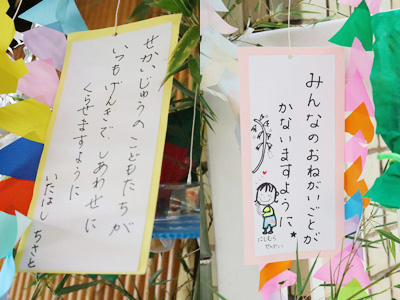 せかいじゅうの こどもたちが
いつも げんきで、しあわせに
くらせますように
いたばし ちさと
みんなのおねがいごとが
かないますように★
にしむら